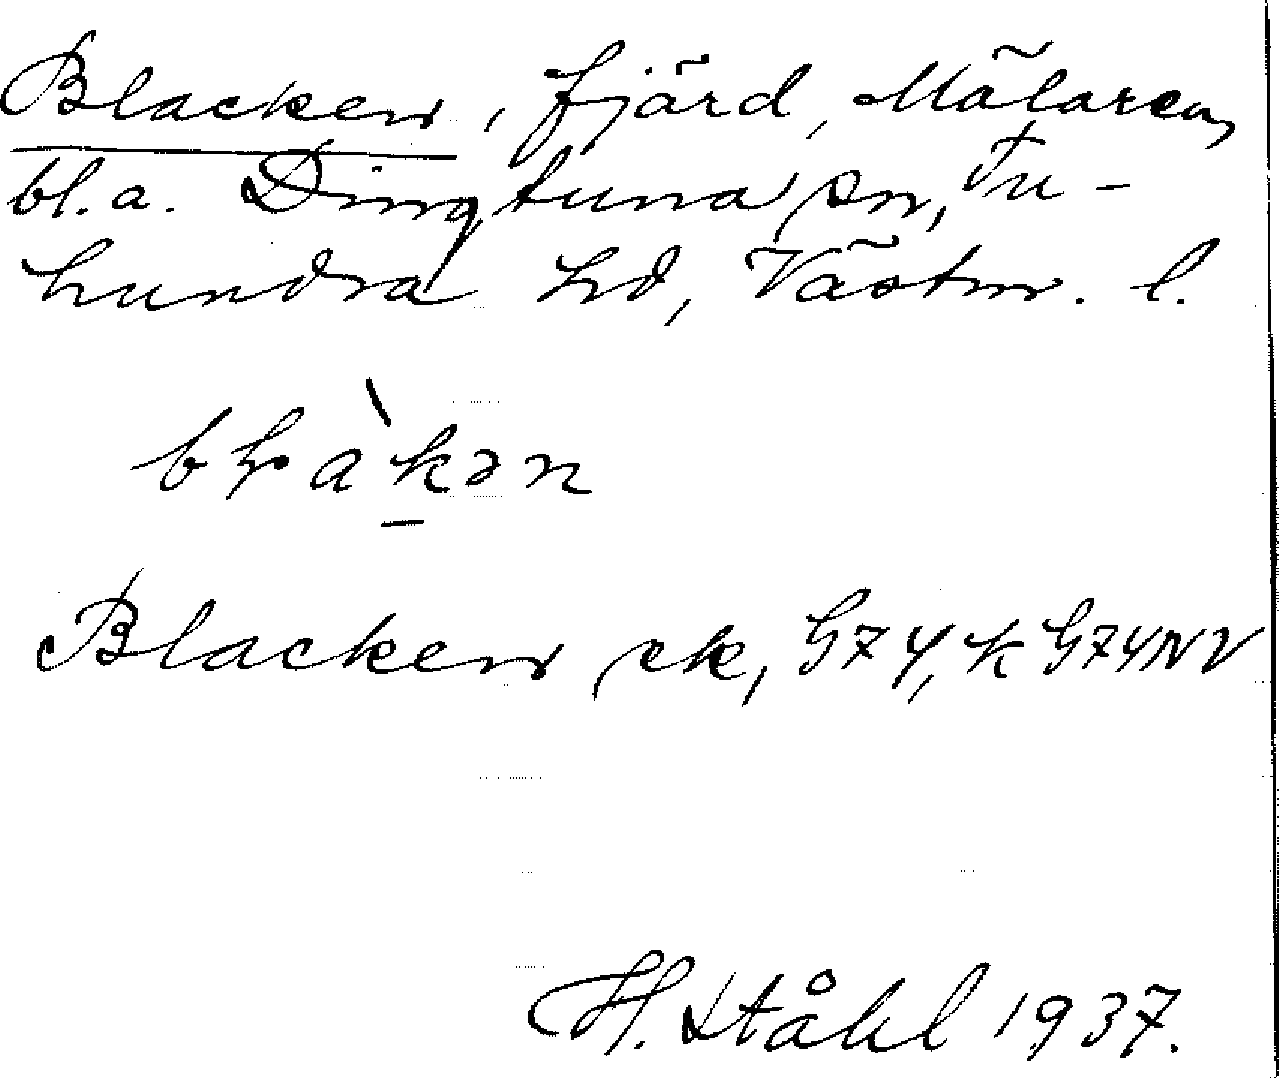 Blacken, fjärd, Mälaren,
bl.a. Dingtuna sn, Tu-
hundra hd, Västm. l.
blàkən
Blacken ek, G74, k G74NV
H. Ståhl 1937.